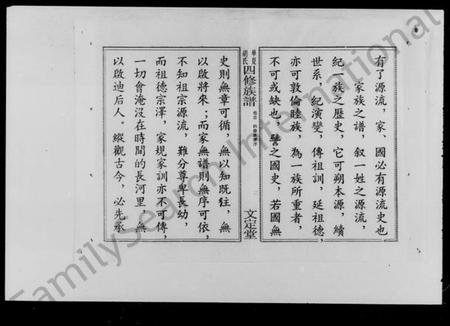 有了源流，家、國必有源流史也
家族之譜，叙一姓之源流，
紀一族之歷史，它可朔本源，續
世系，紀演變，傳祖訓，延祖德，
亦可敦倫睦族，為一族所重者，
不可或缺也，譬之國史，若國無
四修族譜
文定堂
史則無章可循，無以知既往，無
以啟將來；而家無譜則無序可依，
不知祖宗源流，難分尊卑長幼，
而祖德宗澤，家規家訓亦不可傳，
一切會淹沒在時間的長河里，無
以啟迪后人。縱觀古今，必先承
FamilySearch International